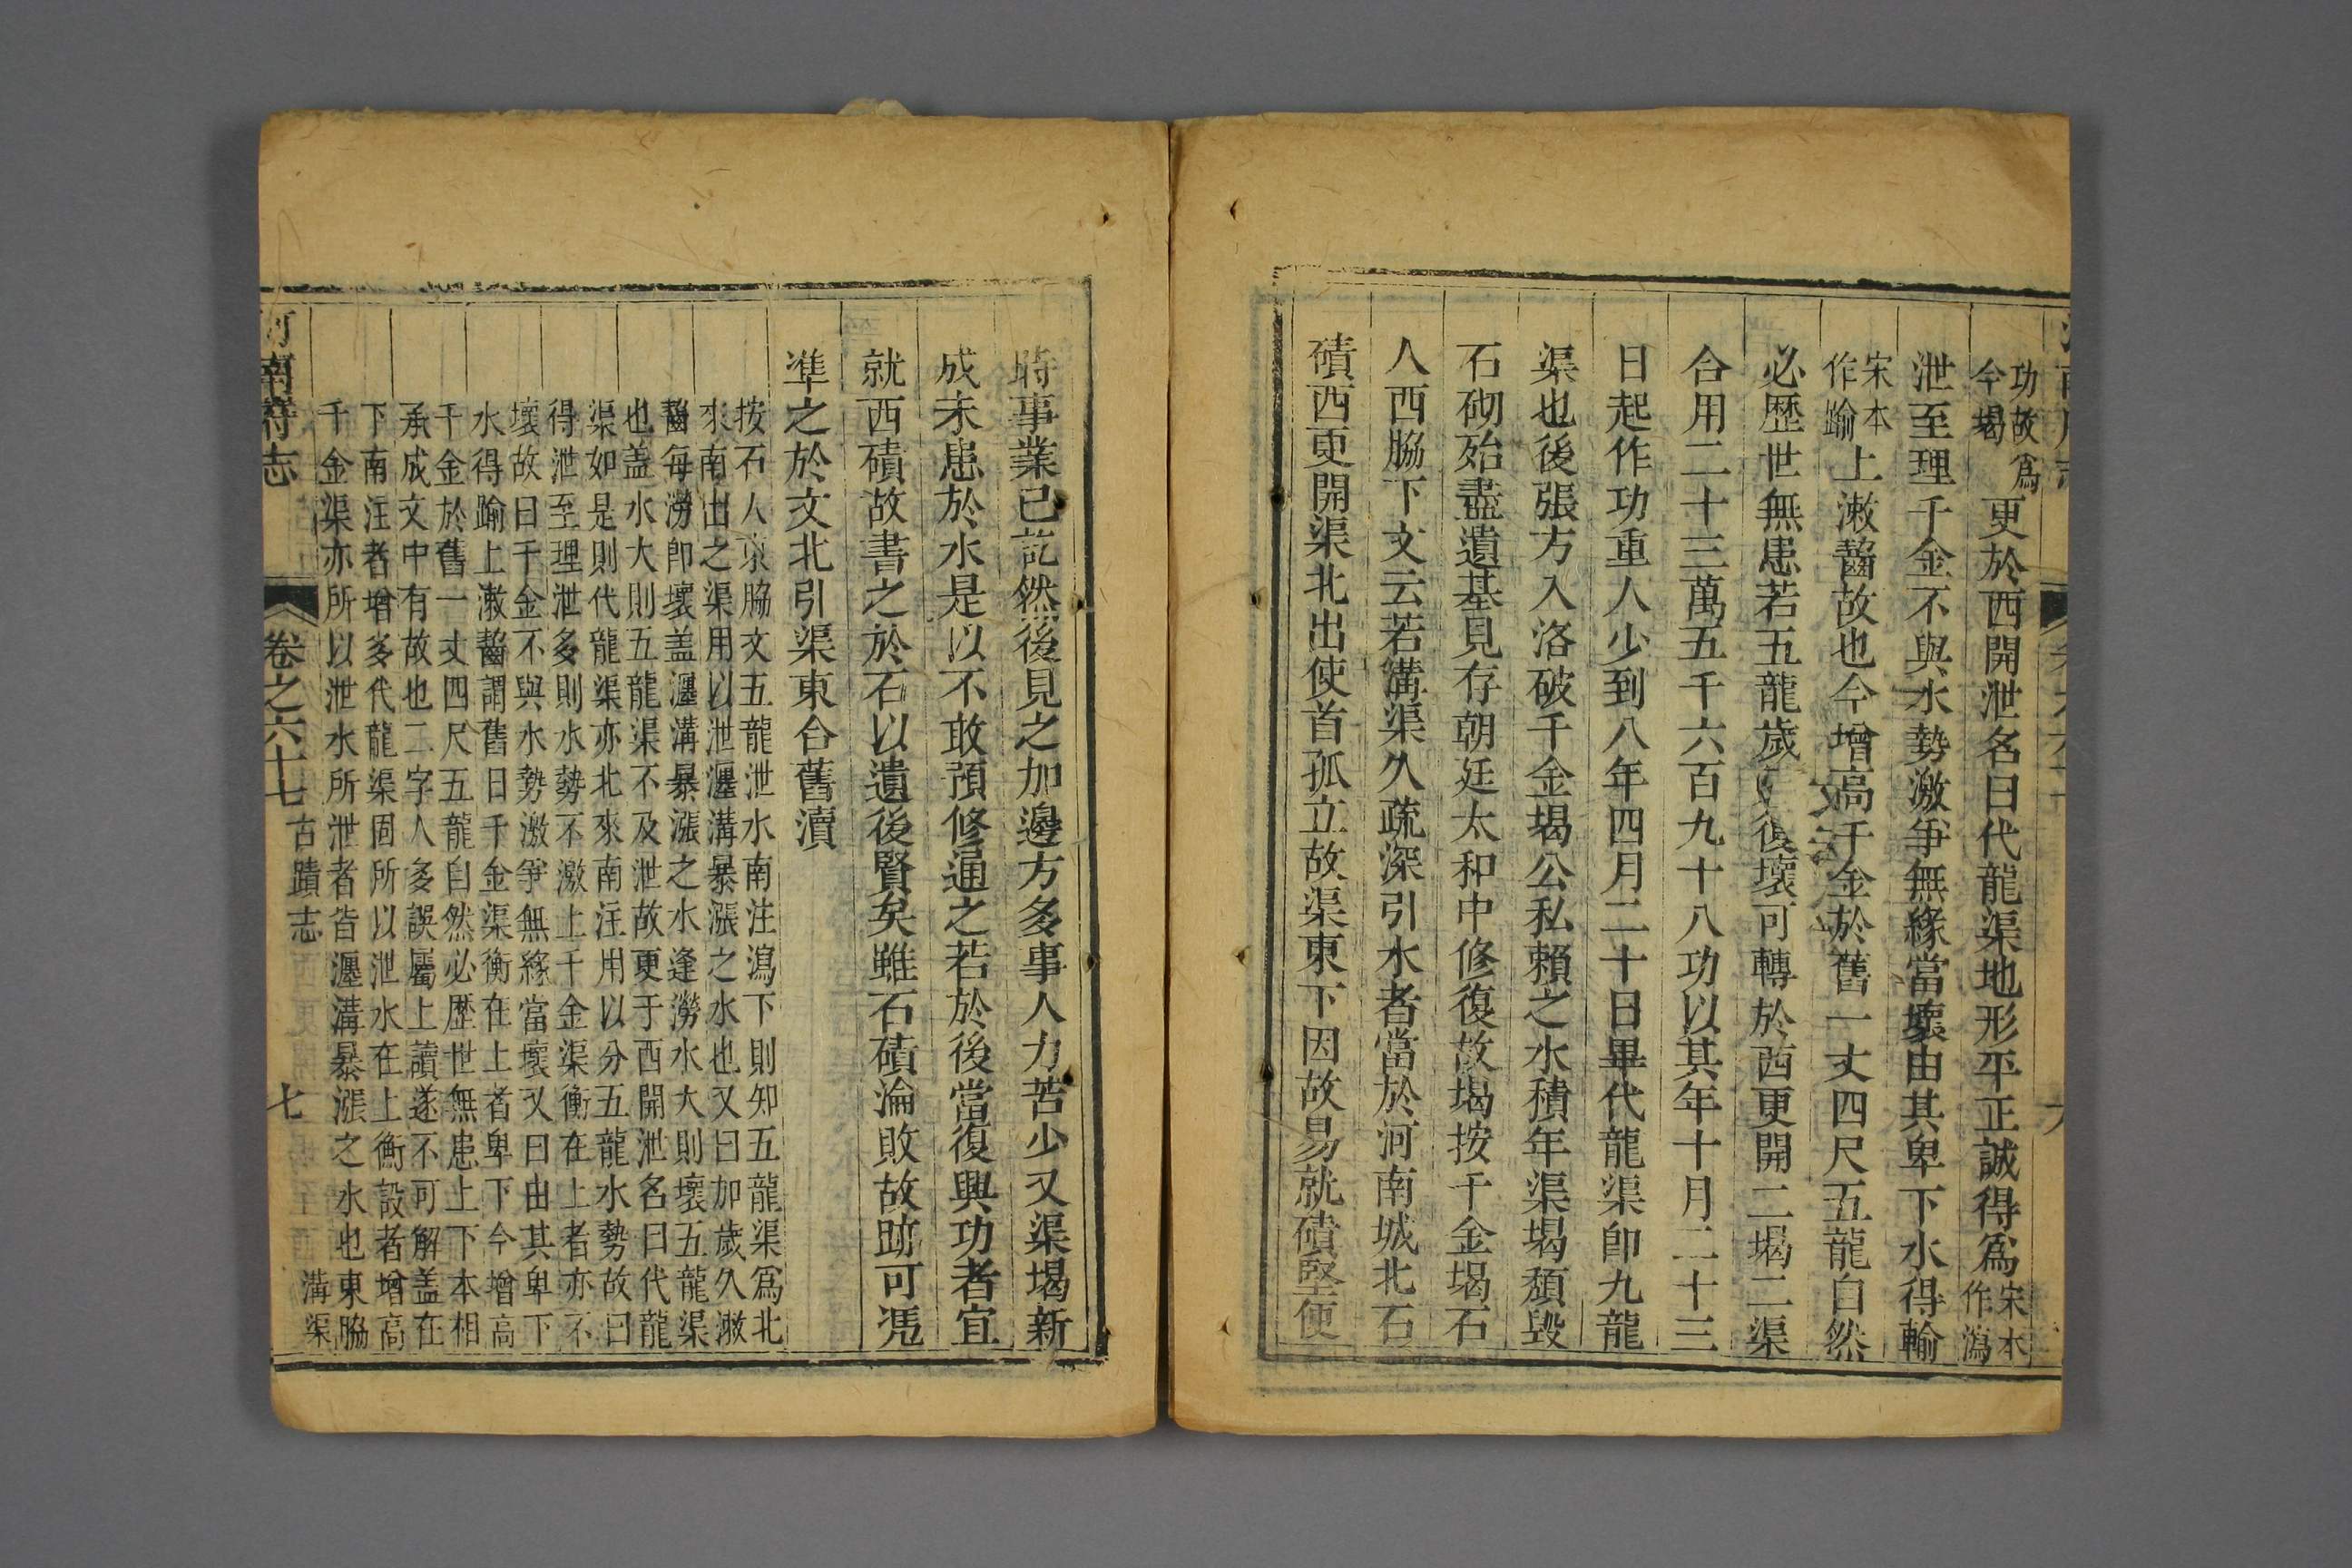 功故爲
今堨
更於西開泄名曰代龍渠地形平正誠得爲
宋本
作瀉
泄至理千金不與水勢激爭無緣當壞由其卑下水得輸
宋本
作踰
上漱齧故也今增高千金於舊一丈四尺五龍自然
必歴世無患若五龍歲久復壞可轉於西更開二堨二渠
合用二十三萬五千六百九十八功以其年十月二十三
日起作功重人少到八年四月二十日畢代龍渠即九龍
渠也後張方入洛破千金堨公私賴之水積年渠堨頽毀
石砌殆盡遺基見存朝廷太和中修復故堨按千金堨石
人西脇下文云若溝渠久疏深引水者當於河南城北石
磧西更開渠北出使首孤立故渠東下因故易就磧堅便
時事業已訖然後見之加邊方多事人力苦少又渠堨新
成未患於水是以不敢預修通之若於後當復興功者宜
就西磧故書之於石以遺後賢矣雖石磧淪敗故跡可憑
準之於文北引渠東合舊瀆
按石人東脇文五龍泄水南注瀉下則知五龍渠爲北
來南出之渠用以泄瀍溝暴漲之水也又曰加歲久漱
齧每澇即壞盖瀍溝暴漲之水逢澇水大則壞五龍渠
也盖水大則五龍渠不及泄故更于西開泄名曰代龍
渠如是則代龍渠亦北來南注用以分五龍水勢故曰
得泄至理泄多則水勢不激上千金渠衡在上者亦不
壞故曰千金不與水勢激爭無緣當壞又曰由其卑下
水得踰上漱齧謂舊日千金渠衡在上者卑下今增高
千金於舊一丈四尺五龍自然必歴世無患上下本相
承成文中有故也二字人多誤屬上讀遂不可解盖在
下南注者增多代龍渠固所以泄水在上衡設者增高
千金渠亦所以泄水所泄者皆瀍溝暴漲之水也東脇
河南府志 卷之六十七 古蹟志 溝渠 七